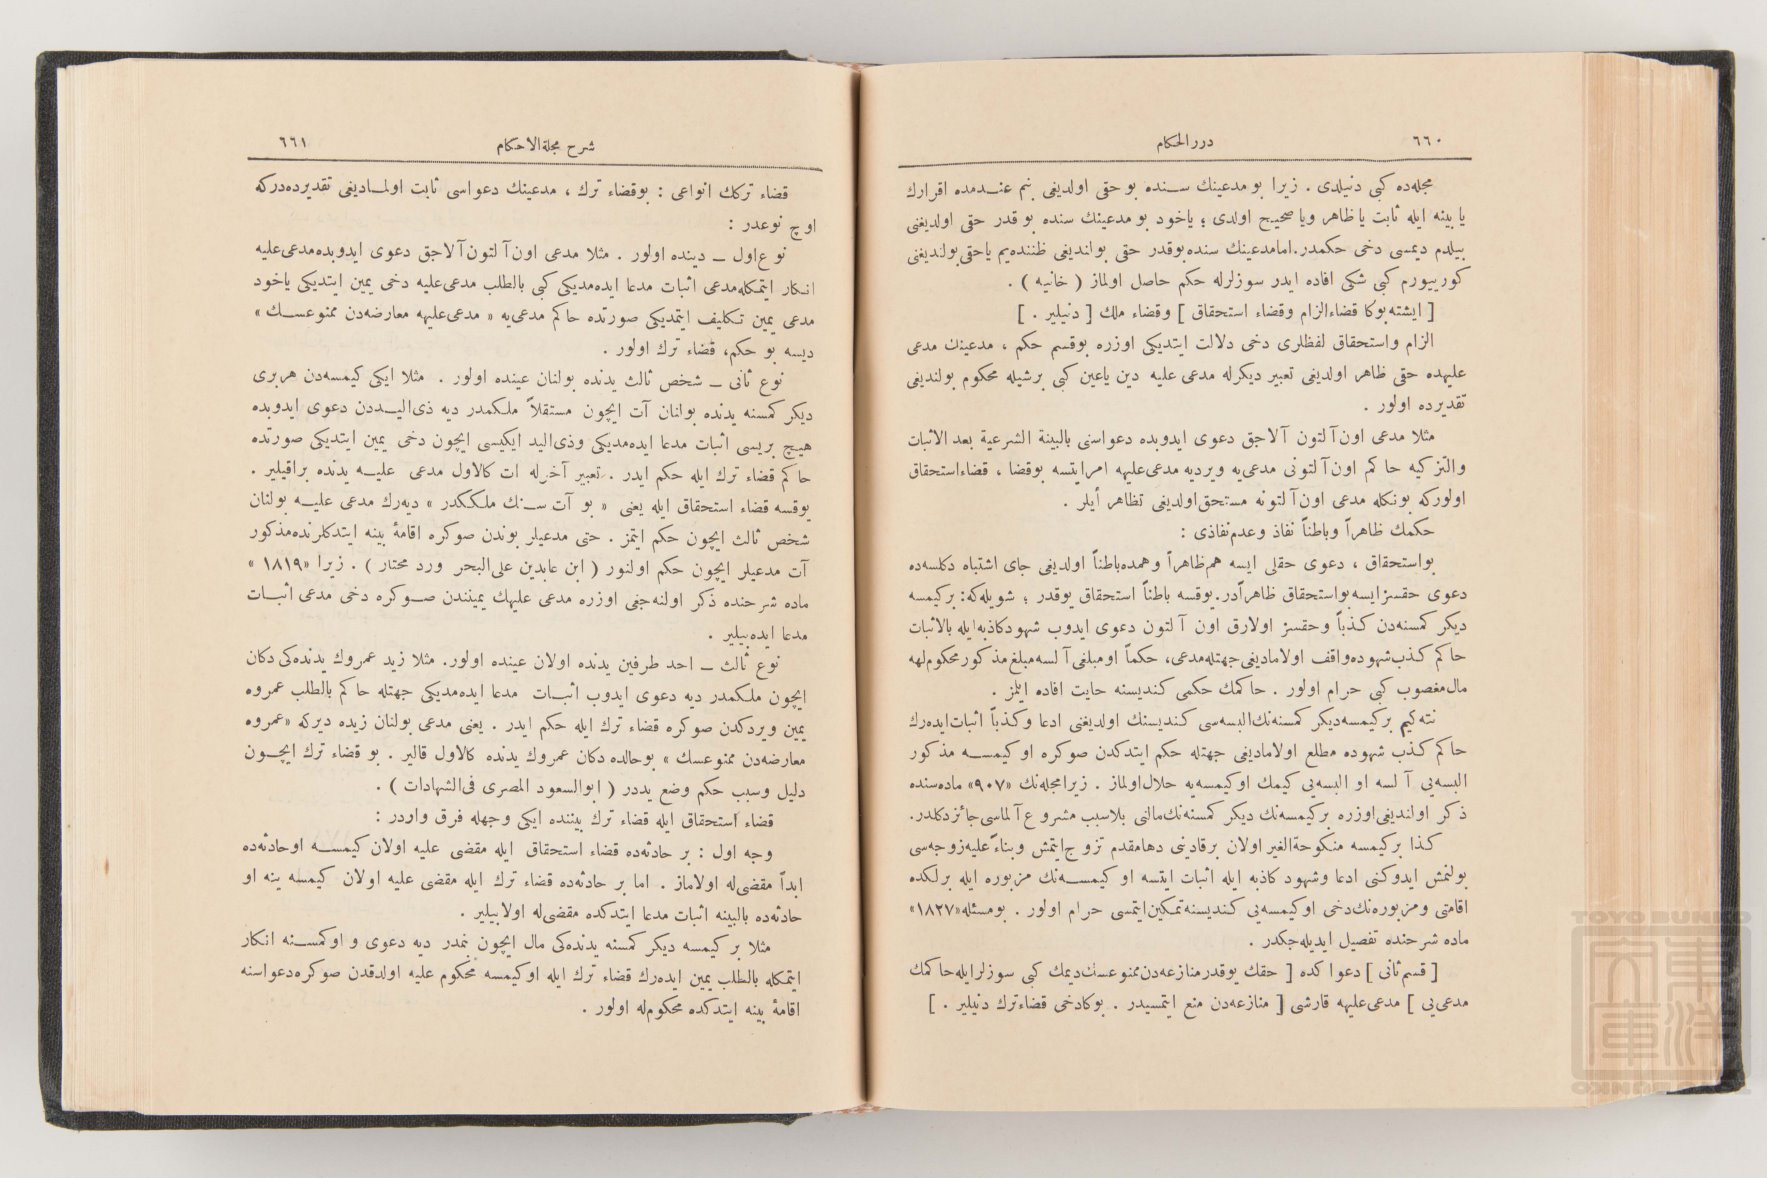 ٦٦٠
درر الحكام
مجله‌ده كبی دنیلدی . زیرا بو مدعینك سنده بو حقی اولدیغی بنم عندمده اقرارك
یا بینه ایله ثابت یا ظاهر ویا صحیح اولدی ؛ یاخود بو مدعینك سنده بو قدر حقی اولدیغنی
بیلدم دیمسی دخی حكمدر. اما مدعینك سنده بوقدر حقی بولندیغی ظننده‌یم یا حقی بولندیغنی
كورییورم كبی شكی افاده ایدر سوزلرله حكم حاصل اولماز ( خانیه ) .
[ ایشته بوكا قضاء الزام وقضاء استحقاق ] وقضاء ملك [ دنیلیر . ]
الزام واستحقاق لفظلری دخی دلالت ایتدیكی اوزره بوقسم حكم ، مدعینك مدعی
علیهده حقی ظاهر اولدیغی تعبیر دیكرله مدعی علیه دین یاعین كبی برشیله محكوم بولندیغی
تقدیرده اولور .
مثلا مدعی اون آلتون آلاجق دعوی ایدوبده دعواسنی بالبینة الشرعیة بعد الاثبات
والتزكیه حاكم اون آلتونی مدعی‌یه ویر دیه مدعی‌علیهه امر ایتسه بوقضا ، قضاء استحقاق
اولوركه بونكله مدعی اون آلتونه مستحق اولدیغی تظاهر أیلر .
حكمك ظاهراً وباطناً نفاذ وعدم نفاذی :
بواستحقاق ، دعوی حقلی ایسه هم ظاهراً وهمده باطناً اولدیغی جای اشتباه دكلسه‌ده
دعوی حقسز ایسه بواستحقاق ظاهراًدر. یوقسه باطناً استحقاق یوقدر ؛ شویله‌كه : بركیمسه
دیكر كمسنه‌دن كذباً وحقسز اولارق اون آلتون دعوی ایدوب شهود كاذبه ایله بالاثبات
حاكم كذب شهوده واقف اولامادیغی جهتله مدعی ، حكماً اومبلغی آلسه مبلغ مذكور محكوم‌لهه
مال مغصوب كبی حرام اولور . حاكمك حكمی كندیسنه حایت افاده ایلمز .
نته‌كیم بركیمسه دیكر كمسنه‌نك البسه‌سی كندیسنك اولدیغنی ادعا وكذباً اثبات ایده‌رك
حاكم كذب شهوده مطلع اولامادیغی جهتله حكم ایتدكدن صوكره او كیمسه مذكور
البسه‌یی آلسه او البسه‌یی كیمك اوكیمسه‌یه حلال اولماز . زیرا مجله‌نك «٩٠٧» ماده‌سنده
ذكر اولندیغی اوزره بركیمسه‌نك دیكر كمسنه‌نك مالنی بلاسبب مشروع آلماسی جائز دكلدر.
كذا بركیمسه منكوحةالغیر اولان برقادینی دها مقدم تزوج ایتمش وبناءً علیه زوجه‌سی
بولنمش ایدوكنی ادعا وشهود كاذبه ایله اثبات ایتسه او كیمسه‌نك مزبوره ایله برلكده
اقامتی ومزبوره‌نك دخی اوكیمسه‌یی كندیسنه تمكین ایتمسی حرام اولور . بومسئله «١٨٢٧»
ماده شرحنده تفصیل ایدیله‌جكدر .
[ قسم ثانی ] دعواكده [ حقك یوقدر منازعه‌دن ممنوعسك دیمك كبی سوزلر ایله حاكمك
مدعی‌یی ] مدعی‌علیهه قارشی [ منازعه‌دن منع ایتمسیدر . بوكا دخی قضاء ترك دنیلیر . ]
شرح مجلة الاحكام
٦٦١
قضاء تركك انواعی : بوقضاء ترك ، مدعینك دعواسی ثابت اولمادیغی تقدیرده‌دركه
اوچ نوعدر :
نوع اول ــ دینده اولور . مثلا مدعی اون آلتون آلاجق دعوی ایدوبده مدعی‌علیه
انكار ایتمكله مدعی اثبات مدعا ایده‌مدیكی كبی بالطلب مدعی‌علیه دخی یمین ایتدیكی یاخود
مدعی یمین تكلیف ایتمدیكی صورتده حاكم مدعی‌یه « مدعی‌علیهه معارضه‌دن ممنوعسك »
دیسه بو حكم، قضاء ترك اولور .
نوع ثانی ــ شخص ثالث یدنده بولنان عینده اولور . مثلا ایكی كیمسه‌دن هربری
دیكر كمسنه یدنده بولنان آت ایچون مستقلاً ملكمدر دیه ذی‌الیددن دعوی ایدوبده
هیچ بریسی اثبات مدعا ایده‌مدیكی وذی‌الید ایكیسی ایچون دخی یمین ایتدیكی صورتده
حاكم قضاء ترك ایله حكم ایدر . تعبیر آخرله ات كالاول مدعی علیه یدنده براقیلیر .
یوقسه قضاء استحقاق ایله یعنی « بو آت سنك ملككدر » دیه‌رك مدعی علیه بولنان
شخص ثالث ایچون حكم ایتمز . حتی مدعیلر بوندن صوكره اقامۀ بینه ایتدكلرنده مذكور
آت مدعیلر ایچون حكم اولنور ( ابن عابدین علی‌البحر ورد محتار ) . زیرا «١٨١٩ »
ماده شرحنده ذكر اولنه‌جغی اوزره مدعی علیهك یمیننن صوكره دخی مدعی اثبات
مدعا ایده‌بیلیر .
نوع ثالث ــ احد طرفین یدنده اولان عینده اولور. مثلا زید عمروك یدنده‌كی دكان
ایچون ملكمدر دیه دعوی ایدوب اثبات مدعا ایده‌مدیكی جهتله حاكم بالطلب عمروه
یمین ویردكدن صوكره قضاء ترك ایله حكم ایدر . یعنی مدعی بولنان زیده دیركه «عمروه
معارضه‌دن ممنوعسك » بوحالده دكان عمروك یدنده كالاول قالیر . بو قضاء ترك ایچون
دلیل وسبب حكم وضع یددر ( ابوالسعود المصری فی‌الشهادات ) .
قضاء استحقاق ایله قضاء ترك بیننده ایكی وجهله فرق واردر :
وجه اول : بر حادثه‌ده قضاء استحقاق ایله مقضی علیه اولان كیمسه اوحادثه‌ده
ابداً مقضی‌له اولاماز . اما بر حادثه‌ده قضاء ترك ایله مقضی علیه اولان كیمسه ینه او
حادثه‌ده بالبینه اثبات مدعا ایتدكده مقضی‌له اولابیلیر .
مثلا بر كیمسه دیكر كمسنه یدنده‌كی مال ایچون بنمدر دیه دعوی و اوكمسنه انكار
ایتمكله بالطلب یمین ایده‌رك قضاء ترك ایله اوكیمسه محكوم علیه اولدقدن صوكره دعواسنه
اقامۀ بینه ایتدكده محكوم‌له اولور .
TOYO BUNKO